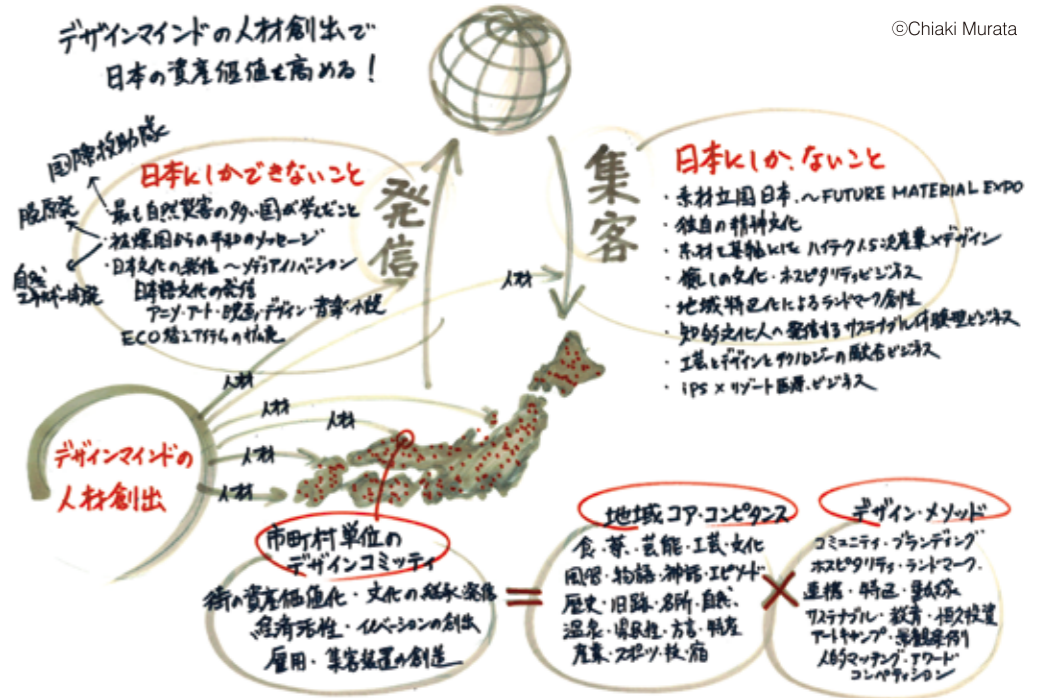 ©Chiaki Murata
デザインマインドの人材創出で
日本の資産価値を高める！
国際救助隊
脱原発
自然
エネルギー開発
日本にしかできないこと
最も自然災害の多い国が学んだこと
・被爆国からの平和のメッセージ
・日本文化の発信 〜メディアイノベーション
日本語文化の発信
アニメ・アート・映画・デザイン・音楽・小説
ECO替えアイテムの
発信
集客
日本にしか、ないこと
・素材立国日本、〜FUTURE MATERIAL EXPO
・独自の精神文化
・素材を基軸にした ハイテク1.5次産業×デザイン
・癒しの文化・ホスピタリティビジネス
・地域特区化によるランドマーク創性
・知的文化人へ発信するサステナブル体験型ビジネス
・工芸とデザインとテクノロジーの融合ビジネス
・iPS×リゾート医療ビジネス
人材
人材
人材
人材
人材
人材
デザインマインドの
人材創出
市町村単位の
デザインコミッティ
街の資産価値化・文化の継承発信
経済活性・イノベーションの創出
雇用・集客装置の創造
＝
地域コア・コンピタンス
食・芸能・工芸・文化
風習・物語・神話・エピソード
歴史・旧跡・名所・自然
温泉・県民性・方言・特産
産業・スポーツ・技・宿
×
デザイン・メソッド
コミュニティ・ブランディング
ホスピタリティ・ランドマーク
連携・特区
サステナブル・教育・恒久投資
アートキャンプ・景観条例
人的マッチング・アワード
コンペティション